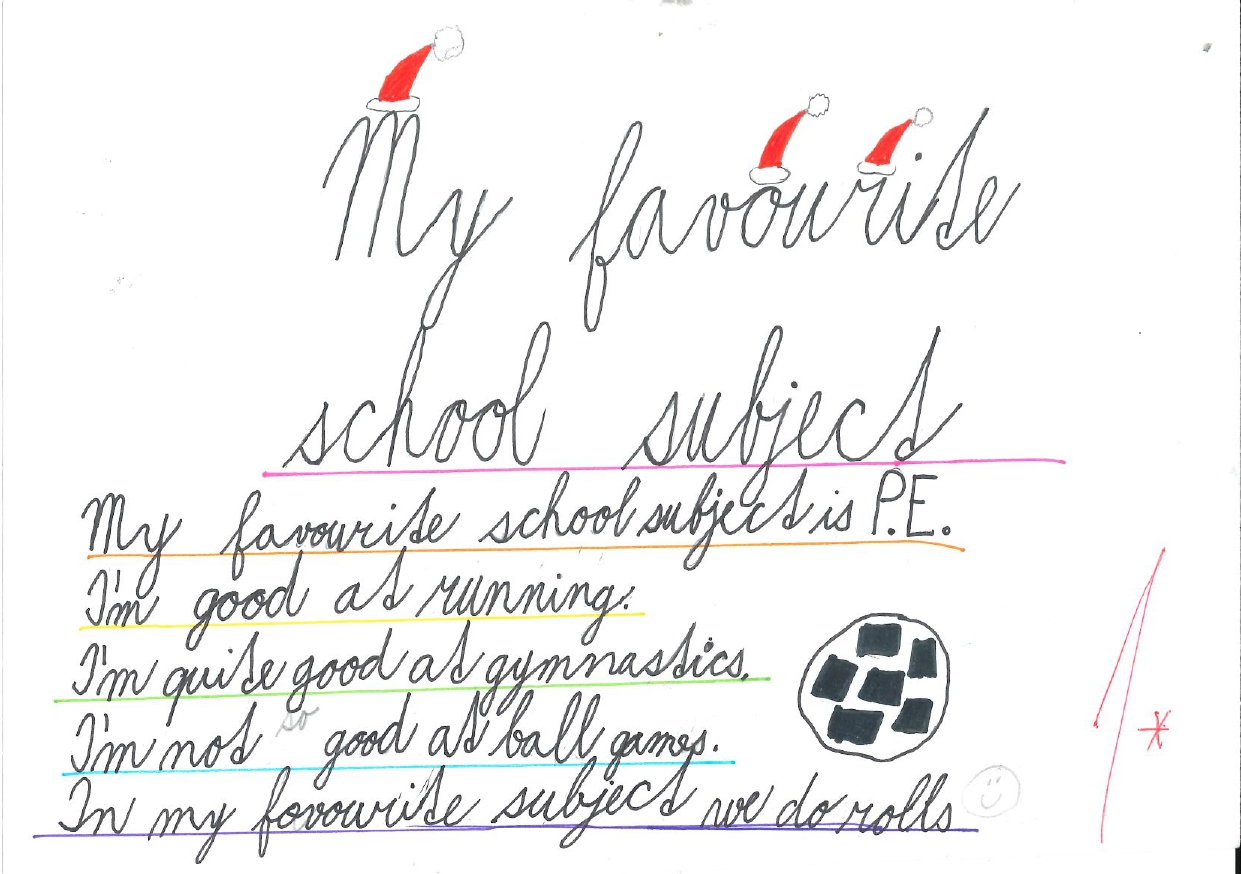 My favourite
school subject
My favourite school subject is P.E.
I'm good at running.
I'm quite good at gymnastics.
I'm not so good at ball games.
In my fovourite subject we do rolls
1*